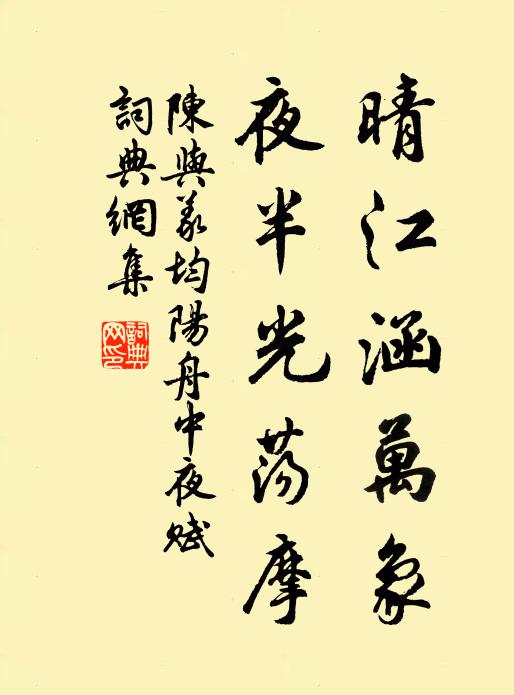 晴江涵萬象
夜半光荡摩
陳與義均陽舟中夜赋
詞典網集
詞典網印